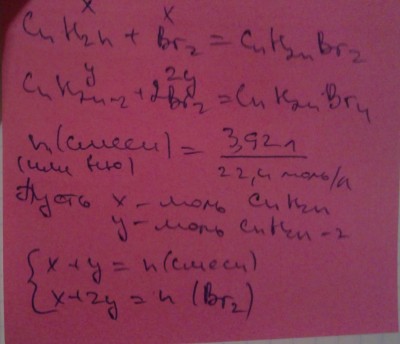 x x
CnH2n + Br2 = CnH2nBr2
y 2y
CnH2n-2 + 2Br2 = CnH2n-2Br4
n(смеси) = 3,92л
(или ню) 22,4 моль/л
Пусть x - моль CnH2n
y - моль CnH2n-2
{ x + y = n(смеси)
x + 2y = n (Br2)